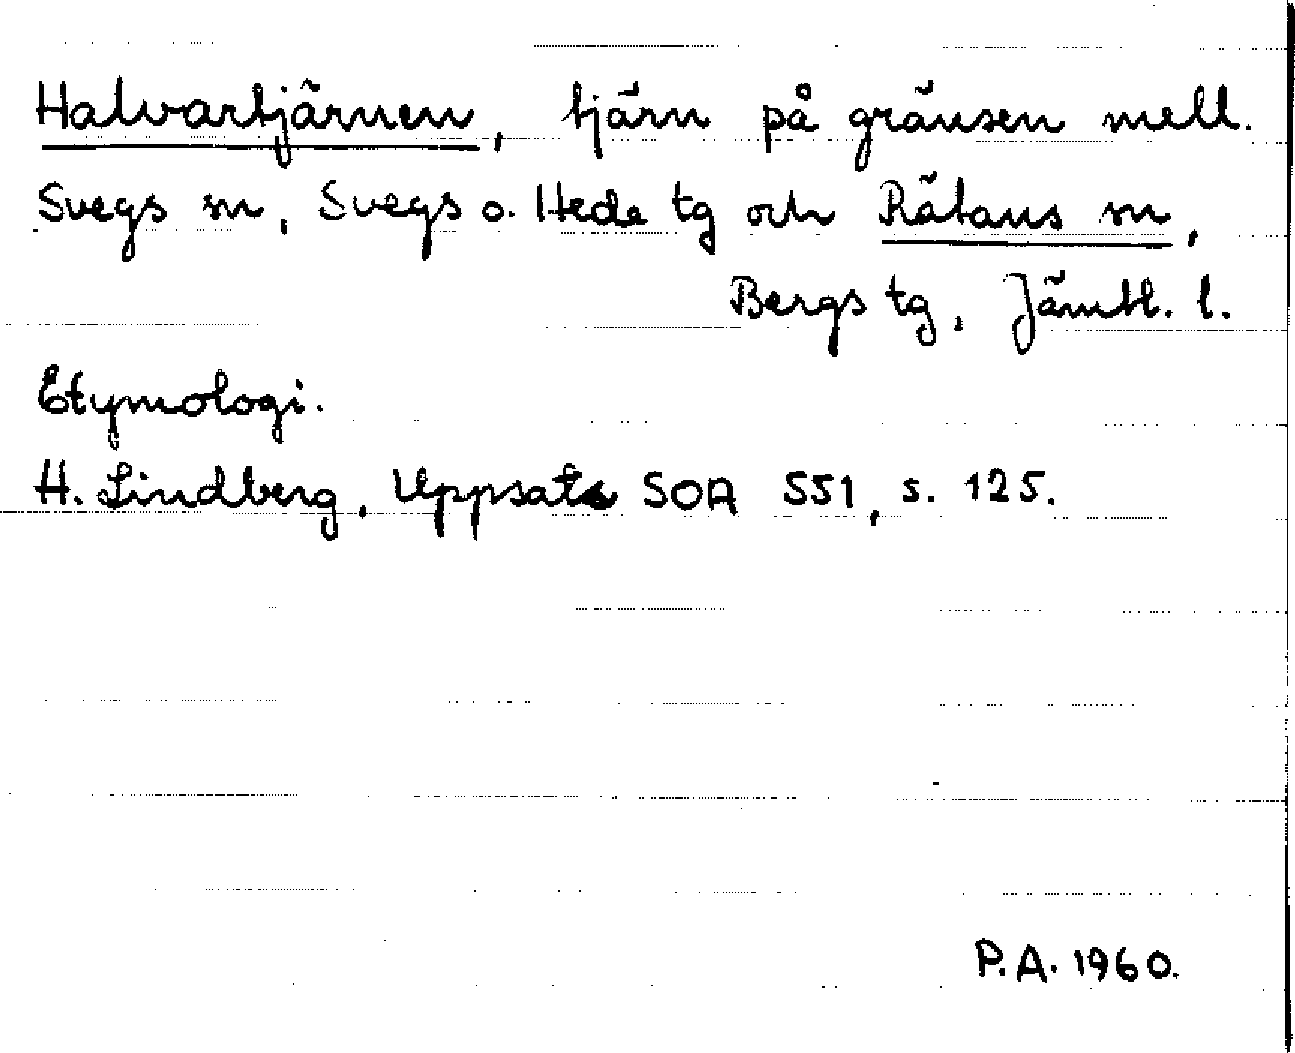 Halvartjärnen, tjärn på gränsen mell.
Svegs sn, Svegs o. Hede tg och Rätans sn,
Bergs tg, Jämtl. l.
Etymologi.
H. Lindberg, Uppsats SOA 551, s. 125.
P.A. 1960.